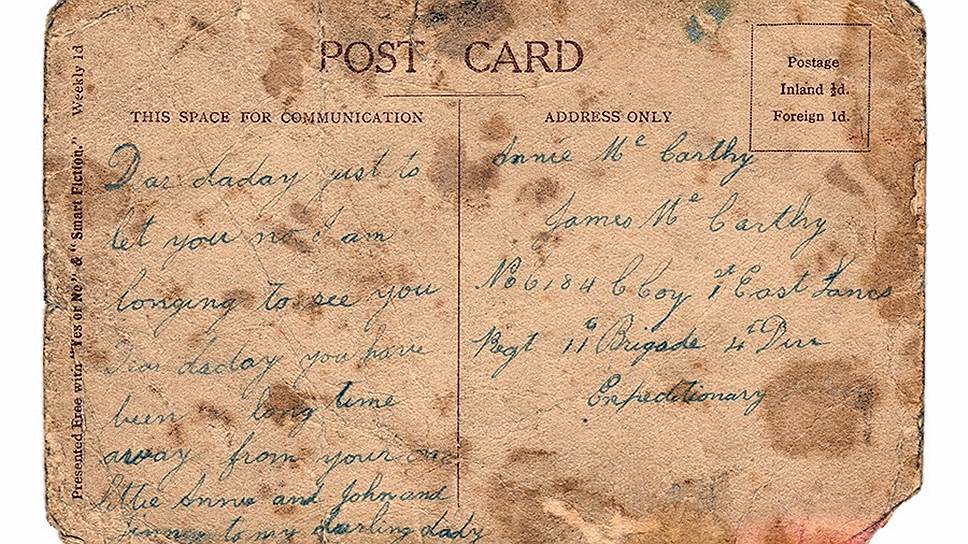 POST CARD
THIS SPACE FOR COMMUNICATION
ADDRESS ONLY
Postage
Inland ½d.
Foreign 1d.
Presented Free with "Yes or No" & "Smart Fiction." Weekly 1d
Dear daday just to
let you no I am
longing to see you
Dear daday you have
been a long time
away from your
little Annie and John and
to my darling dady
Annie Mc Carthy
James Mc Carthy
No 6184 C Coy 1st East Lancs
Regt 11 Brigade 4th Divn
Expeditionary